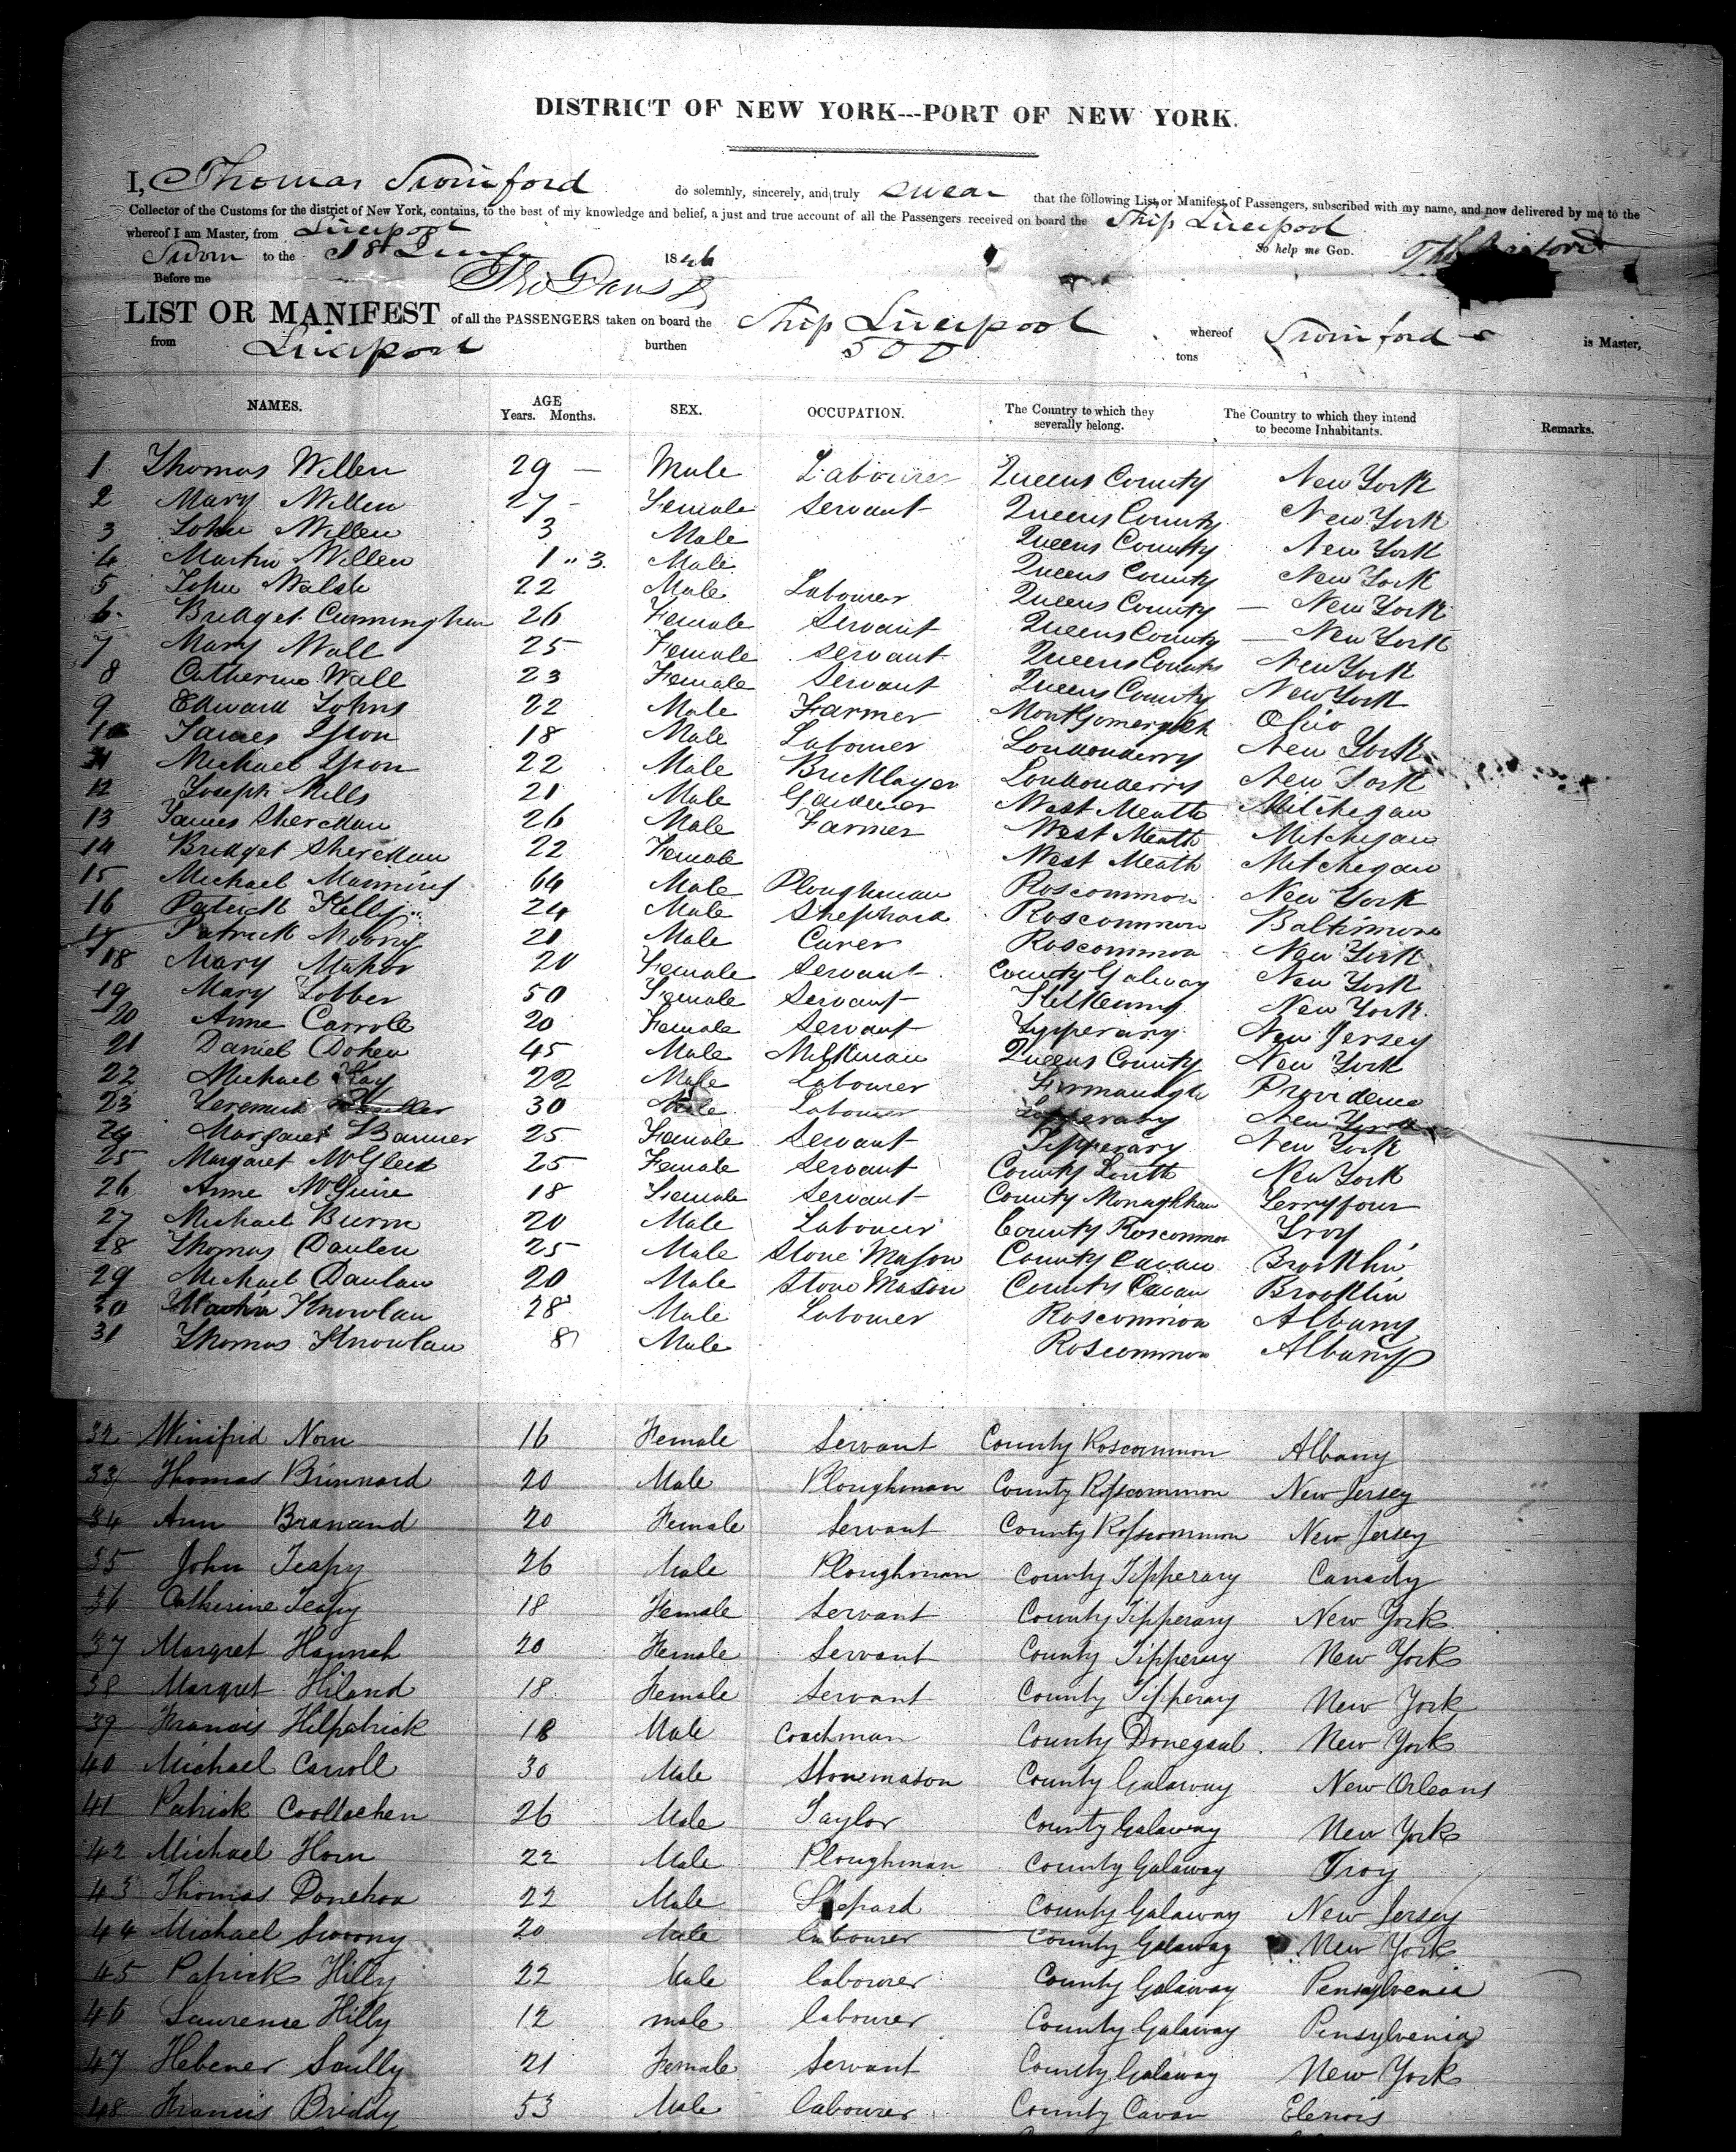 DISTRICT OF NEW YORK---PORT OF NEW YORK.
I, Thomas do solemnly, sincerely, and truly swear that the following List or Manifest of Passengers, subscribed with my name, and now delivered by me to the
Collector of the Customs for the district of New York, contains, to the best of my knowledge and belief, a just and true account of all the Passengers received on board the Ship Liverpool
whereof I am Master, from Liverpool
Sworn to the 18 1846 So help me GOD.
Before me
LIST OR MANIFEST of all the PASSENGERS taken on board the Ship Liverpool whereof is Master,
from Liverpool burthen 500 tons
NAMES. AGE Years. Months. SEX. OCCUPATION. The Country to which they severally belong. The Country to which they intend to become Inhabitants. Remarks.
1 Thomas Willen 29 — Male Labourer Queens County New York
2 Mary Willen 27 - Female Servant Queens County New York
3 John Willen 3 Male Queens County New York
4 Martin Willen 1 .. 3. Male Queens County New York
5 John Walsh 22 Male Labourer Queens County — New York
6 Bridget Cunningham 26 Female Servant Queens County — New York
7 Mary Wall 25 Female Servant Queens County New York
8 Catherine Wall 23 Female Servant Queens County New York
9 Edward Johns 22 Male Farmer Ohio
10 James 18 Male Labourer Londonderry New York
11 Michael 22 Male Bricklayer Londonderry New York
12 Joseph Mills 21 Male West Meath Mitchegan
13 James Sheredan 26 Male Farmer West Meath Mitchegan
14 Bridget Sheredan 22 Female West Meath Mitchegan
15 Michael Manning 64 Male Ploughman Roscommon New York
16 Patrick Kelly 24 Male Shephard Roscommon Baltimore
17 Patrick Moony 21 Male Roscommon New York
18 Mary Mahor 20 Female Servant County Galway New York
19 Mary 50 Female Servant Kilkenny New York
20 Anne Carrole 20 Female Servant Typperary New Jersey
21 Daniel Doken 45 Male Milkman Queens County New York
22 Michael 22 Male Labourer Firmanagh Providence
23 30 Male Labourer New York
24 Margaret 25 Female Servant Tipperary New York
25 Margaret 25 Female Servant County Louth New York
26 Anne McGuire 18 Female Servant County Monaghhan
27 Michael Burn 20 Male Labourer County Roscommon Troy
28 Thomas Daulen 25 Male Stone Mason County Cavan Brooklin
29 Michael Daulan 20 Male Stone Mason County Cavan Brooklin
30 Martin Knowlan 28 Male Labourer Roscommon Albany
31 Thomas Knowlan 8 Male Roscommon Albany
32 Winifrid Norn 16 Female Servant County Roscommon Albany
33 Thomas Brinnard 20 Male Ploughman County Roscommon New Jersey
34 Ann Branand 20 Female Servant County Roscommon New Jersey
35 John Teapy 26 Male Ploughman County Tipperary Canady
36 Catherine Teapy 18 Female Servant County Tipperary New York
37 Margret Hannah 20 Female Servant County Tipperary New York
38 Margret Hiland 18 Female Servant County Tipperary New York
39 Francis Kilpatrick 18 Male Coachman County Donegaul. New York
40 Michael Carroll 30 Male Stonemason County Galaway New Orleans
41 Patrick 26 Male Taylor County Galaway New York
42 Michael Horn 22 Male Ploughman County Galaway Troy
43 Thomas Donehoa 22 Male Shepard County Galaway New Jersey
44 Michael Swoony 20 Male labourer County Galaway New York
45 Patrick Hilly 22 Male labourer County Galaway Pensylvenia
46 Laurense Hilly 12 male labourer County Galaway Pensylvenia
47 Hebener Scully 21 Female Servant County Galaway New York
48 Francis Briddy 53 Male labourer County Cavan Elenois